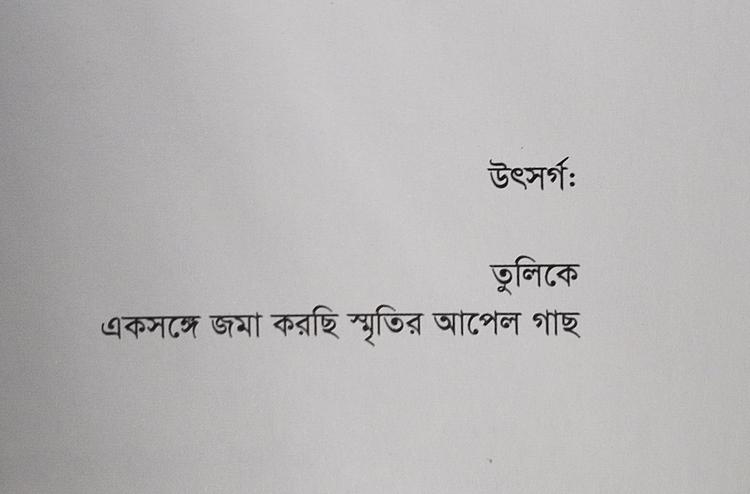 উৎসর্গ:
তুলিকে
একসঙ্গে জমা করছি স্মৃতির আপেল গাছ